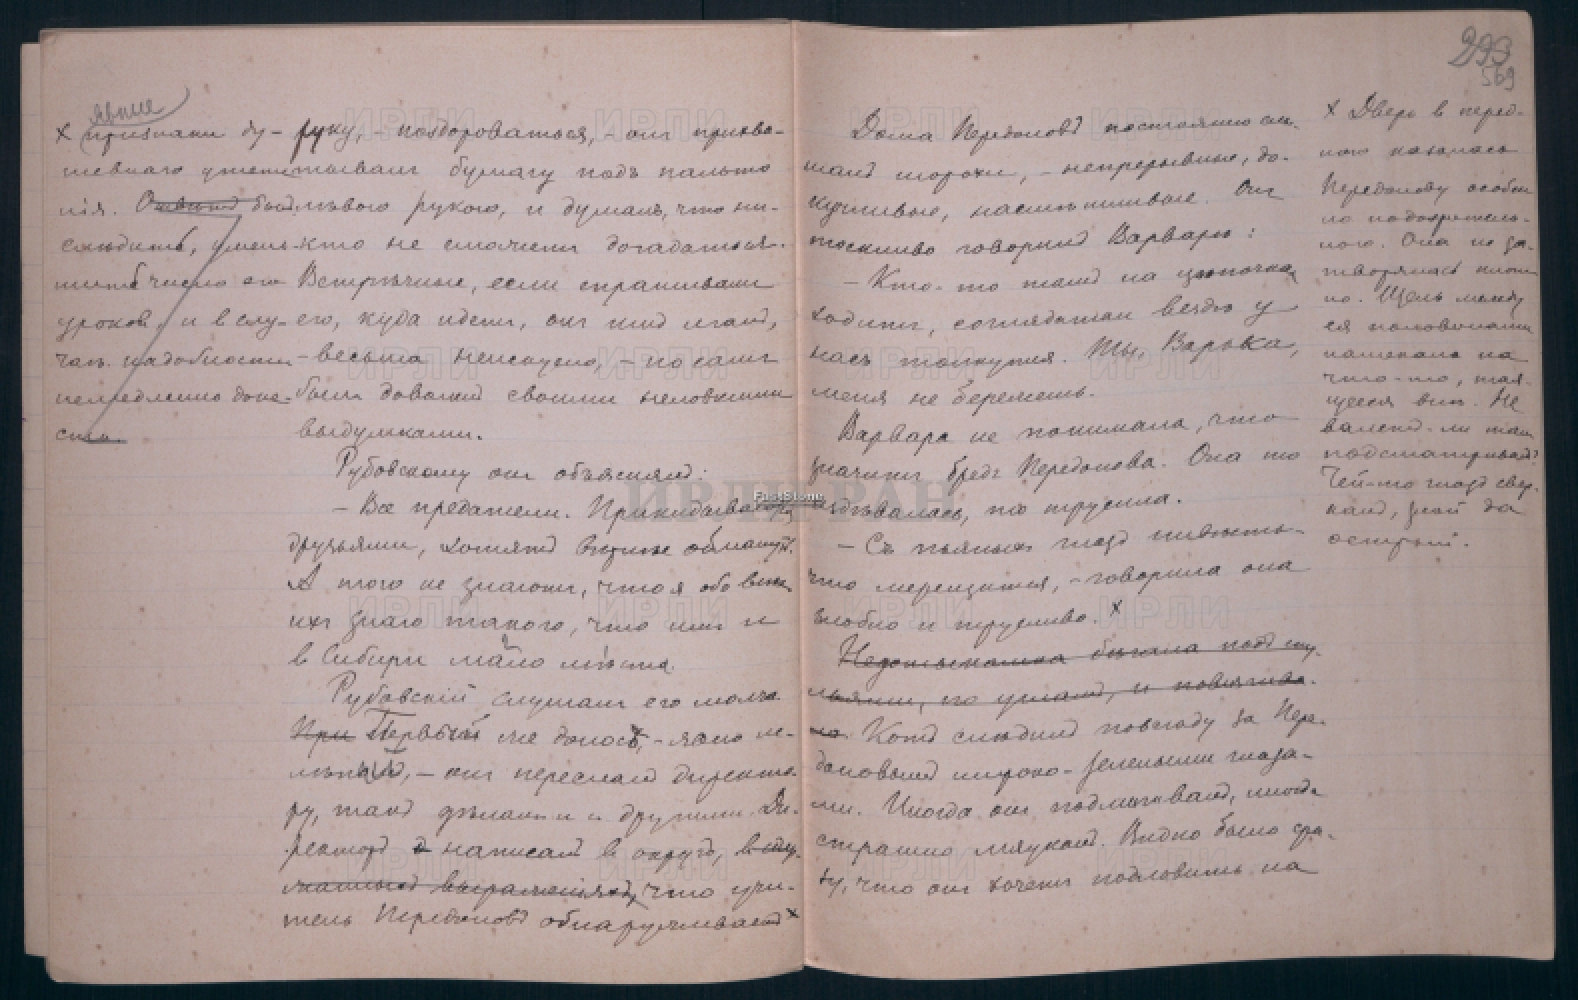 явные
× признаки ду-
шевнаго угнетe-
нія.
слѣдить, умень-
шить число его
уроков, и в слу-
чаѣ надобности
немедленно доне-
сти.
руку, – поздороваться, – он прихва-
тывает бумагу подъ пальто
лѣвою рукою, и думалъ, что ни-
кто не сможет догадаться.
Встрѣчные, если спрашивали
его, куда идет, он имъ лгалъ,
– весьма неискусно, – но сам
был доволен своими неловкими
выдумками.
Рубовскому он объяснялъ:
– Все предатели. Прикидываются
друзьями, хотятъ вѣрнѣе обмануть.
А того не знают, что я обо всѣх
их знаю такого, что им и
в Сибири мало мѣста.
Рубовскій слушал его молча.
При Первый же донос, – явно не-
лѣпый, – он переслалъ директо-
ру, такъ дѣлал и с другими. Ди-
ректоръ написалъ в округ,
что учи-
тель Передоновъ обнаруживаетъ ×
293
569
Дома Передоновъ постоянно слы-
шалъ шорохи, – непрерывные, до-
кучливые, насмѣшливые. Он
тоскливо говорилъ Варварѣ:
– Кто-то тамъ на цыпочках
ходит, соглядатаи вездѣ у
насъ толкутся. Ты, Варька,
меня не бережешь.
Варвара не понимала, что
значит бред Передонова. Она то
издѣвалась, то трусила.
– Съ пьяных глаз нивѣсть-
что мерещится, – говорила она
злобно и трусливо. ×
Недотыкомка бѣгала подъ сту-
льями, по угламъ, и повизгива-
ла. Котъ слѣдилъ повсюду за Пере-
доновымъ широко-зелеными глаза-
ми. Иногда он подмигивалъ, иногда
страшно мяукалъ. Видно было сра-
зу, что он хочет подловить на
× Дверь в перед-
нюю казалась
Передонову особен-
но подозритель-
ною. Она не за-
творялась плот-
но. Щель между
ея половинами
намекала на
что-то, тая-
щееся внѣ. Не
валет-ли там
подсматривает?
Чей-то глаз свер-
кал, злой да
острый.